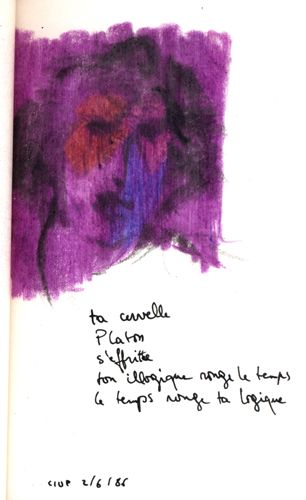 ta cervelle
Platon
s'effrite
ton illogique ronge le temps
le temps ronge ta logique
CIUP 2/6/86